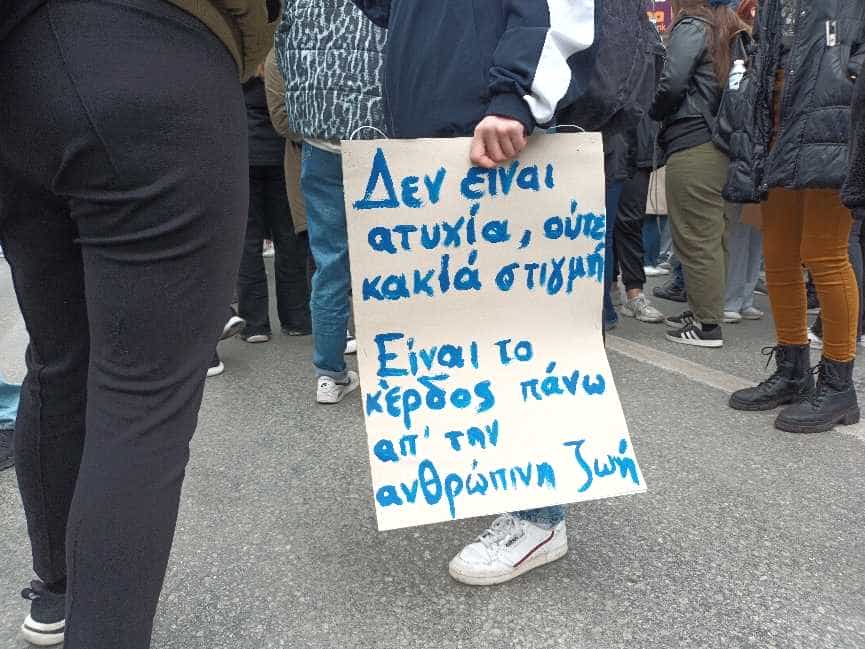 Δεν είναι
ατυχία, ούτε
κακιά στιγμή
Είναι το
κέρδος πάνω
απ' την
ανθρώπινη ζωή